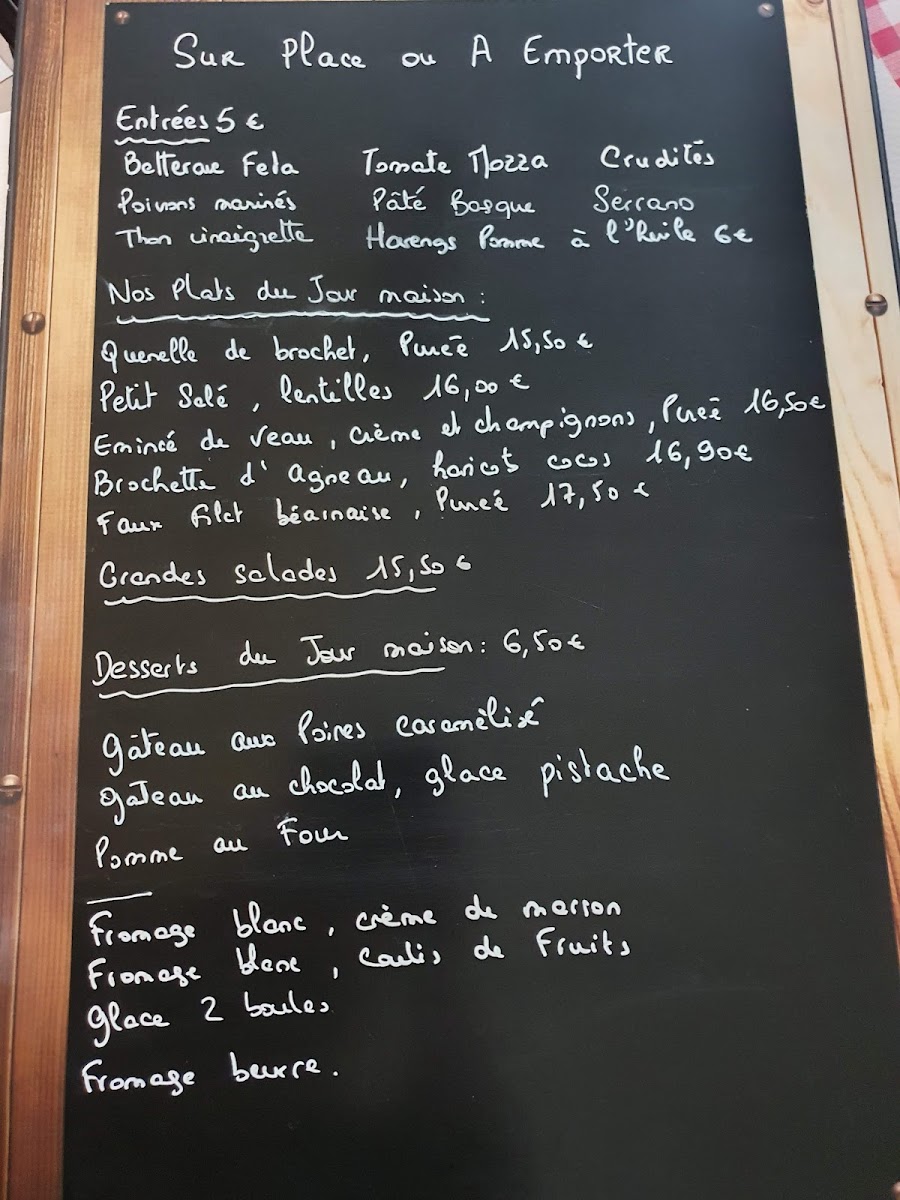 Sur Place ou A Emporter
Entrées 5 €
Betterave Feta Tomate Mozza Crudités
Poivrons marinés Pâté Basque Serrano
Thon vinaigrette Harengs Pomme à l'huile 6€
Nos Plats du Jour maison :
Quenelle de brochet, Purée 15,50 €
Petit Salé, lentilles 16,00 €
Emincé de veau, crème et champignons, Purée 16,50€
Brochette d'Agneau, haricots cocos 16,90€
Faux filet béarnaise, Purée 17,50 €
Grandes salades 15,50 €
Desserts du Jour maison : 6,50€
gâteau aux Poires caramèlisé
gâteau au chocolat, glace pistache
Pomme au Four
Fromage blanc, crème de marron
Fromage blanc, coulis de Fruits
glace 2 boules
Fromage beurre.